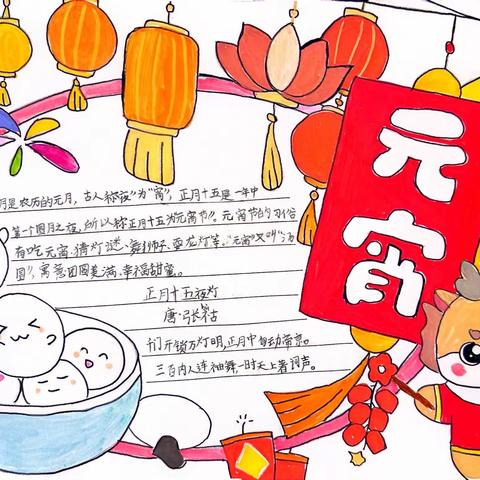 元宵
月是农历的元月，古人称夜"为"宵"，正月十五是一年中
第一个圆月之夜，所以称正月十五为元宵节"。元宵节的习俗
有吃元宵、猜灯谜、舞狮子、耍龙灯等，"元宵"又叫"汤
圆"，寓意团圆美满、幸福甜蜜。
正月十五夜灯
唐·张祜
千门开锁万灯明，正月中旬动帝京。
三百内人连袖舞，一时天上著词声。